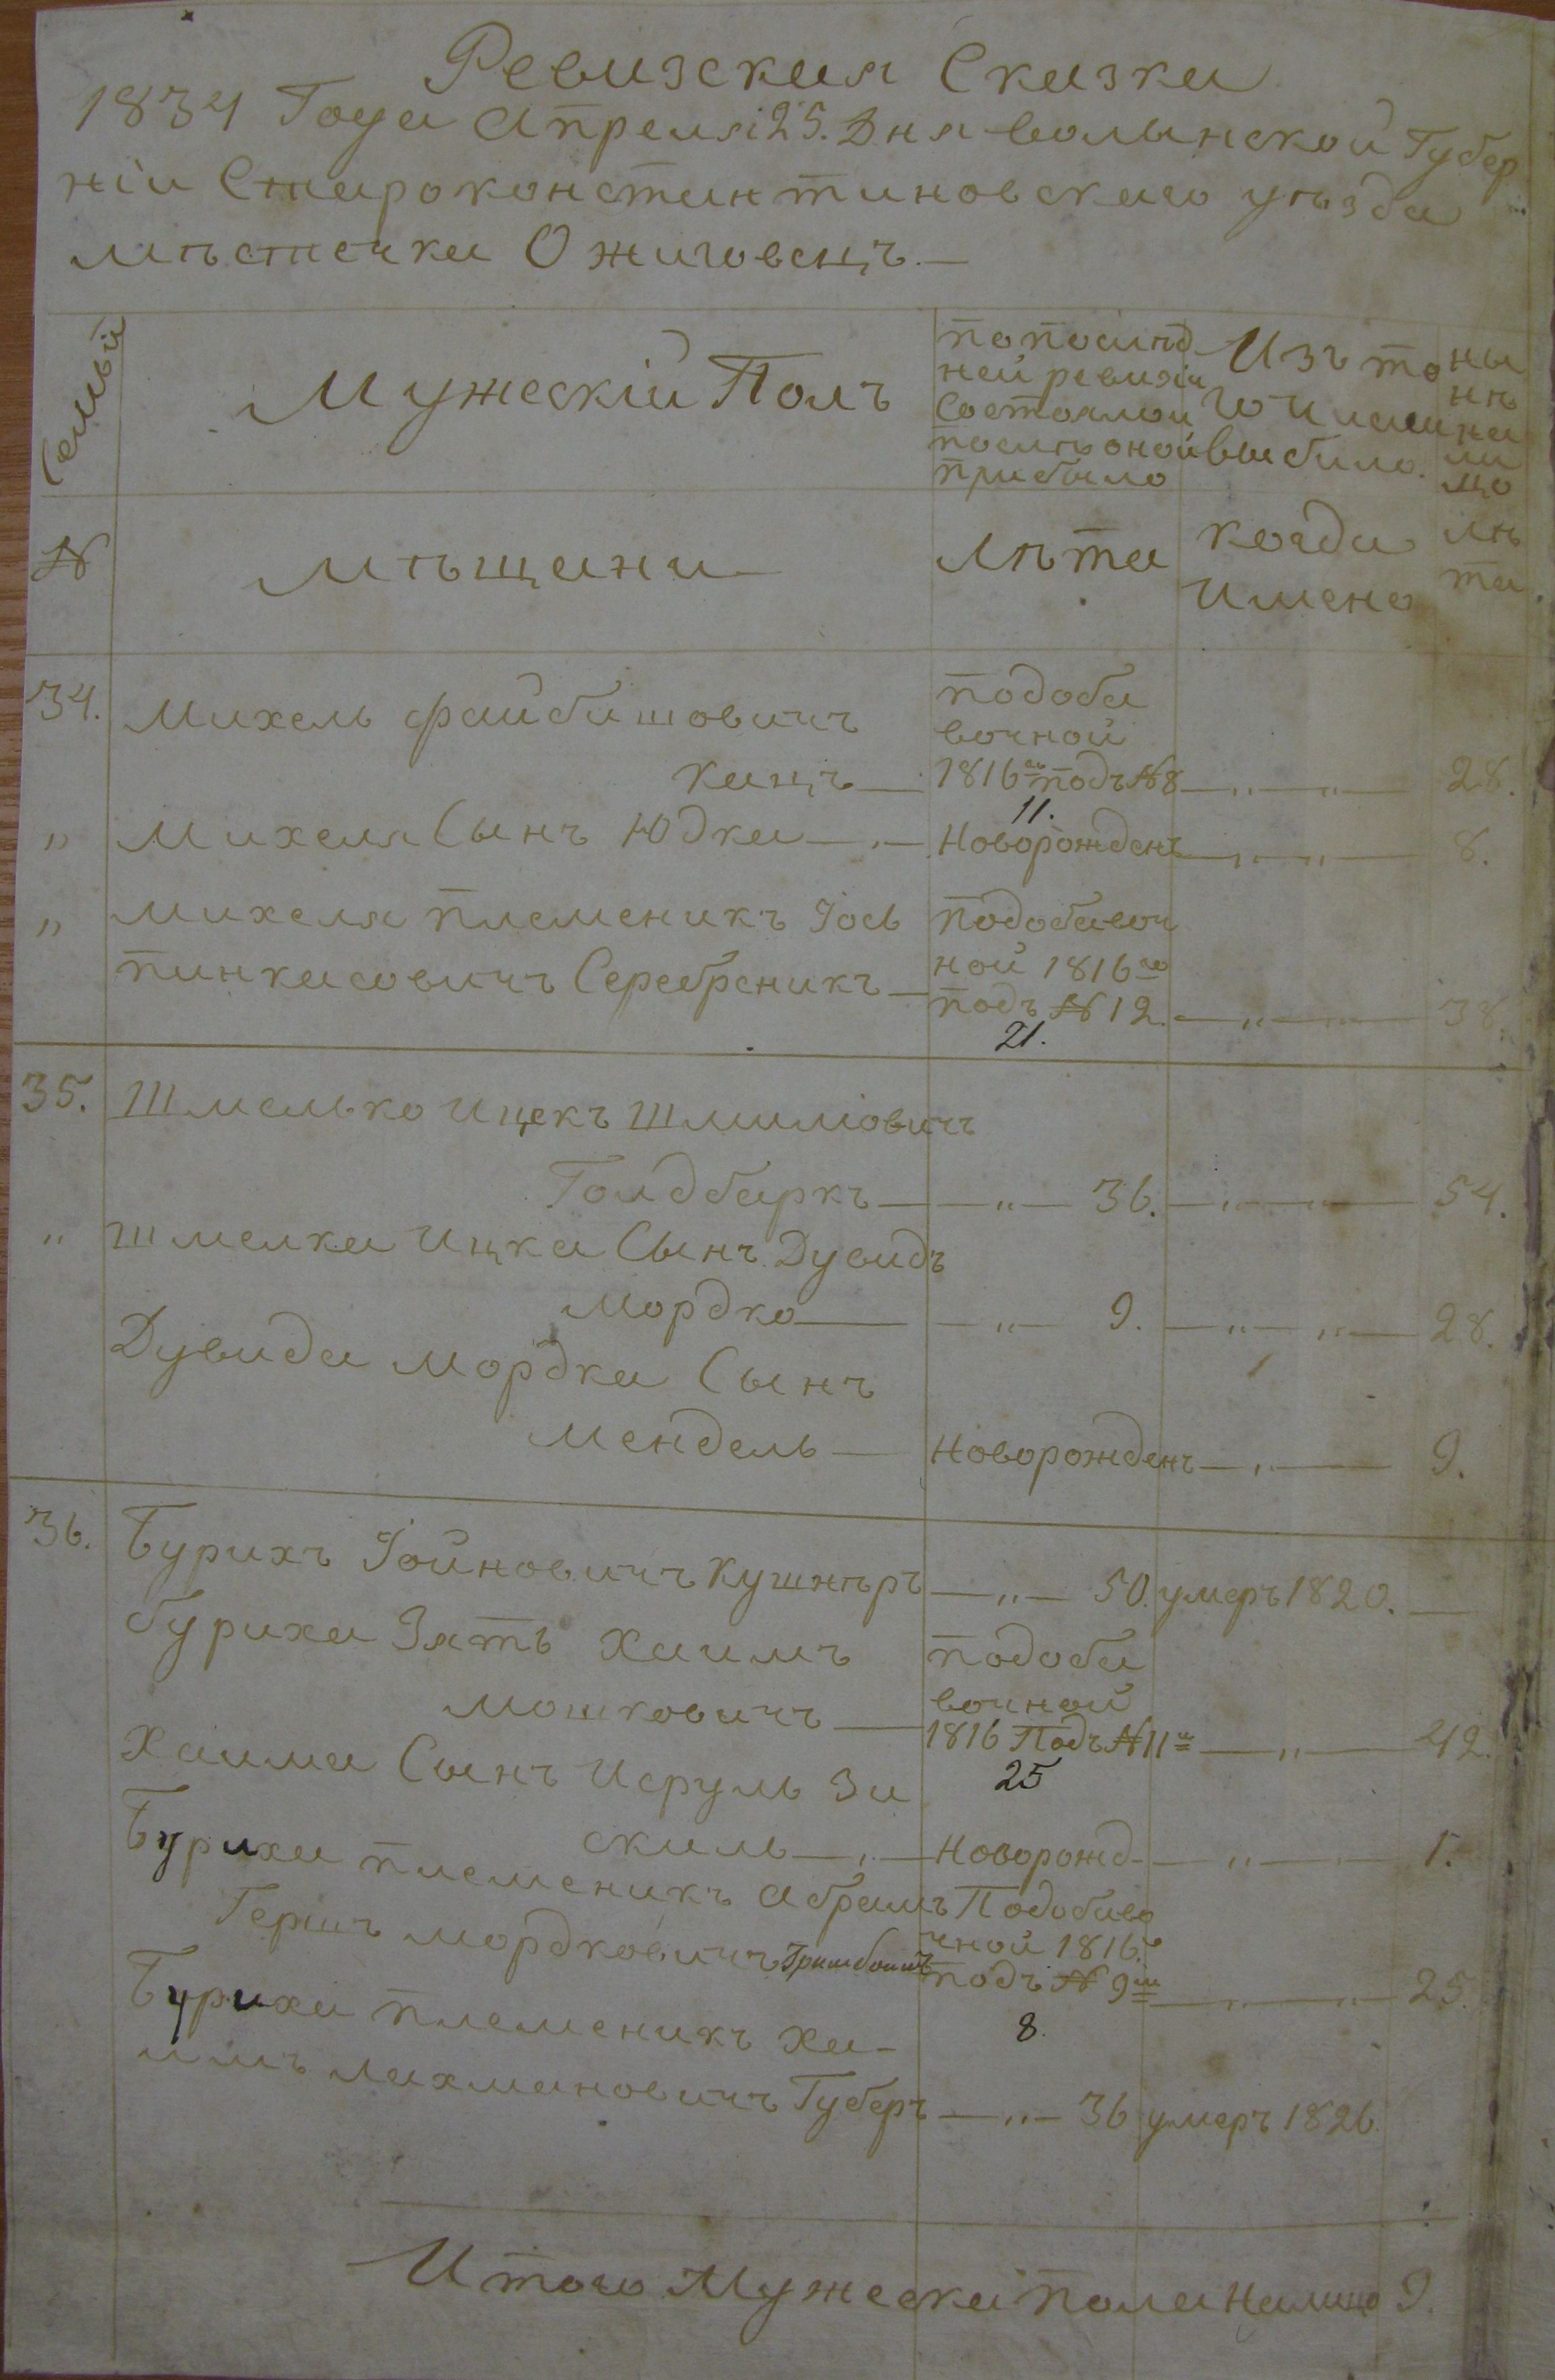 Ревизская Сказка
1834 Года Апреля 25. Дня волынской Губер
ніи Староконстантиновскаго уѣзда
мѣстечка Ожиговецъ.—
Семьи
Мужескій Полъ
попослѣд
ней ревизіи
состояло и
послѣ оной
прибыло
Изъ то
го числа
выбыло.
ны
нѣ
на
ли
цо
№
мѣщани
лѣта
когда
имено
лѣ
та.
34. Михель файбишовичъ
кацъ—
подоба
вочной
1816го подъ №8 —„—„— 28.
11.
„ Михеля Сынъ Юдка—„— Новорожденъ —„—„— 8.
„ михеля племеникъ Іось
пинкасовичъ Серебреникъ—
подобавоч
ной 1816го
подъ № 12. —„— 38.
21.
35. Шмелько ицекъ Шмиліовичъ
Голдбаркъ— —„— 36. —„— 54.
„ шмелка ицка Сынъ Дувидъ
мордко— —„— 9. —„—„— 28.
Дувида мордка Сынъ
мендель— Новорожденъ —„— 9.
36. Бурихъ Іойновичъ кушнѣръ —„— 50. умеръ 1820. —
буриха Зять Хаимъ
мошковичъ—
подоба
вочной
1816 Подъ №11ш —„— 42.
25
Хаима Сынъ Исруль Зи
скиль—„— Новорожд- —„— 1.
Буриха племеникъ абрамъ
Гершъ мордковичъ
Подобаво
чной 1816.
подъ № 9ш —„—„— 25.
8.
Буриха племеникъ ха-
имъ лахмановичъ Губеръ —„— 36 умеръ 1826.
Итого Мужеска пола налицо 9.